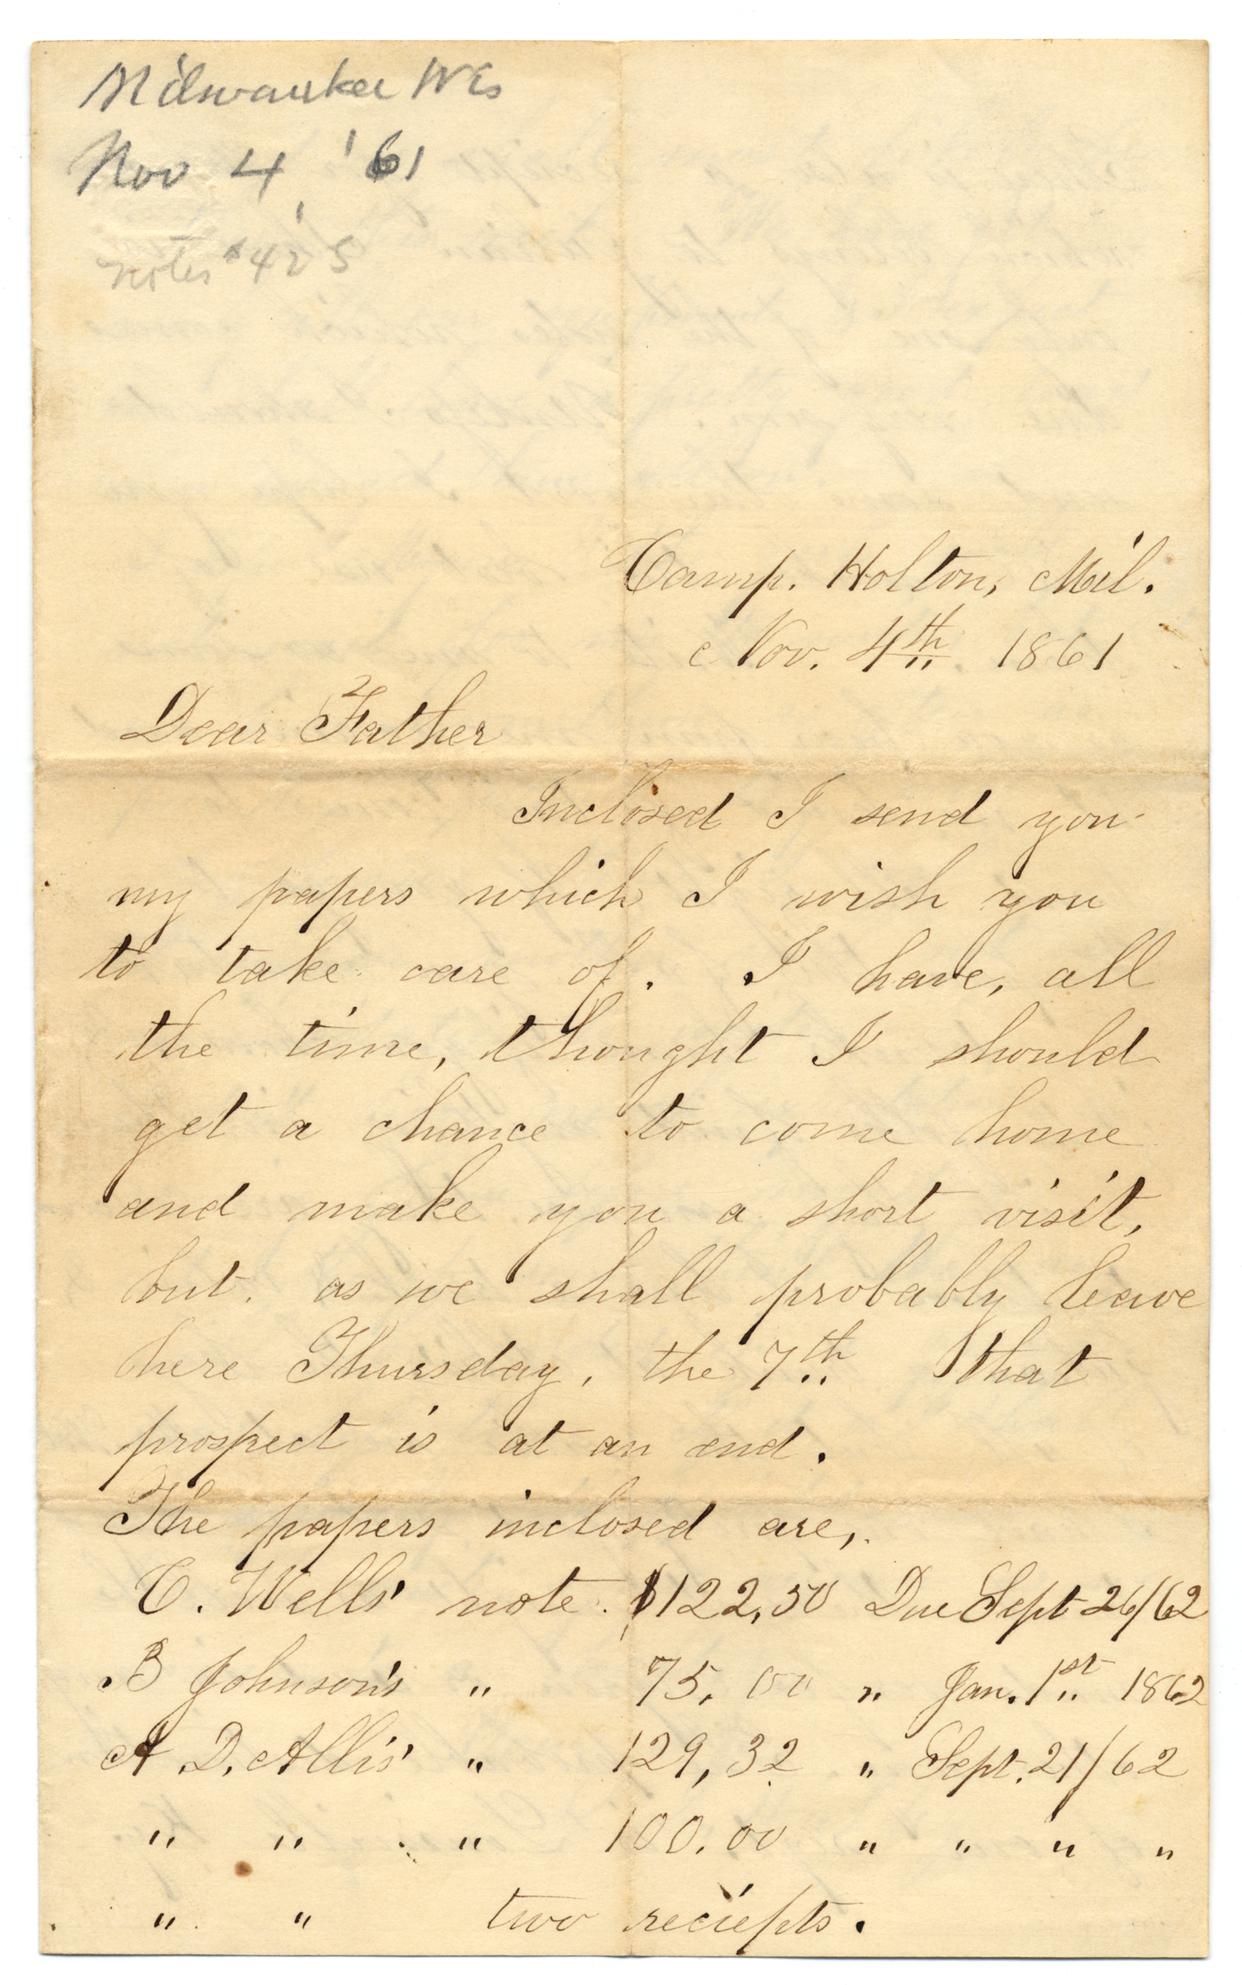 Milwaukee Wis
Nov 4, '61
notes $425
Camp. Holton, Mil.
Nov. 4th. 1861
Dear Father
Inclosed I send you
my papers which I wish you
to take care of. I have, all
the time, thought I should
get a chance to come home
and make you a short visit,
but. as we shall probably leave
here Thursday, the 7th that
prospect is at an end.
The papers inclosed are,.
C. Wells' note. $122,50 Due Sept 26/62
B Johnson's " 75,00 " Jan. 1st 1862
A D. Allis' " 129,32 " Sept. 21/62
" " " 100.00 " " " "
" " two reciepts.